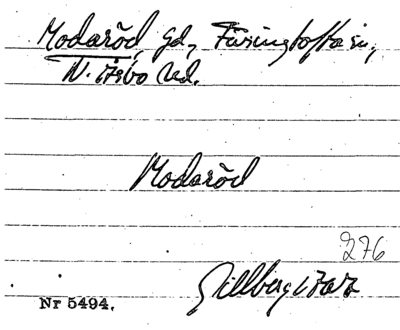 Modaröd, gd, Färingtofta sn,
N. Åsbo hd.
Modaröd
276
Gillberg 1767
Nr 5494.